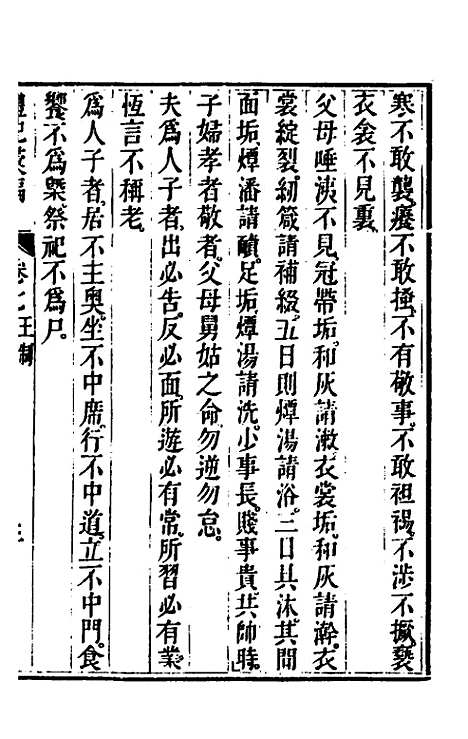 寒不敢襲。癢不敢搔。不有敬事。不敢袒裼。不涉不撅。褻
衣衾不見裏。
父母唾洟不見。冠帶垢。和灰請漱。衣裳垢。和灰請澣。衣
裳綻裂。紉箴請補綴。五日則燂湯請浴。三日具沐。其間
面垢。燂潘請靧。足垢燂湯請洗。少事長。賤事貴。共帥時。
子婦孝者敬者。父母舅姑之命勿逆勿怠。
夫爲人子者。出必告。反必面。所遊必有常。所習必有業。
恆言不稱老。
爲人子者。居不主奧。坐不中席。行不中道。立不中門。食
饗不爲槩。祭祀不爲尸。
卷七王制
三